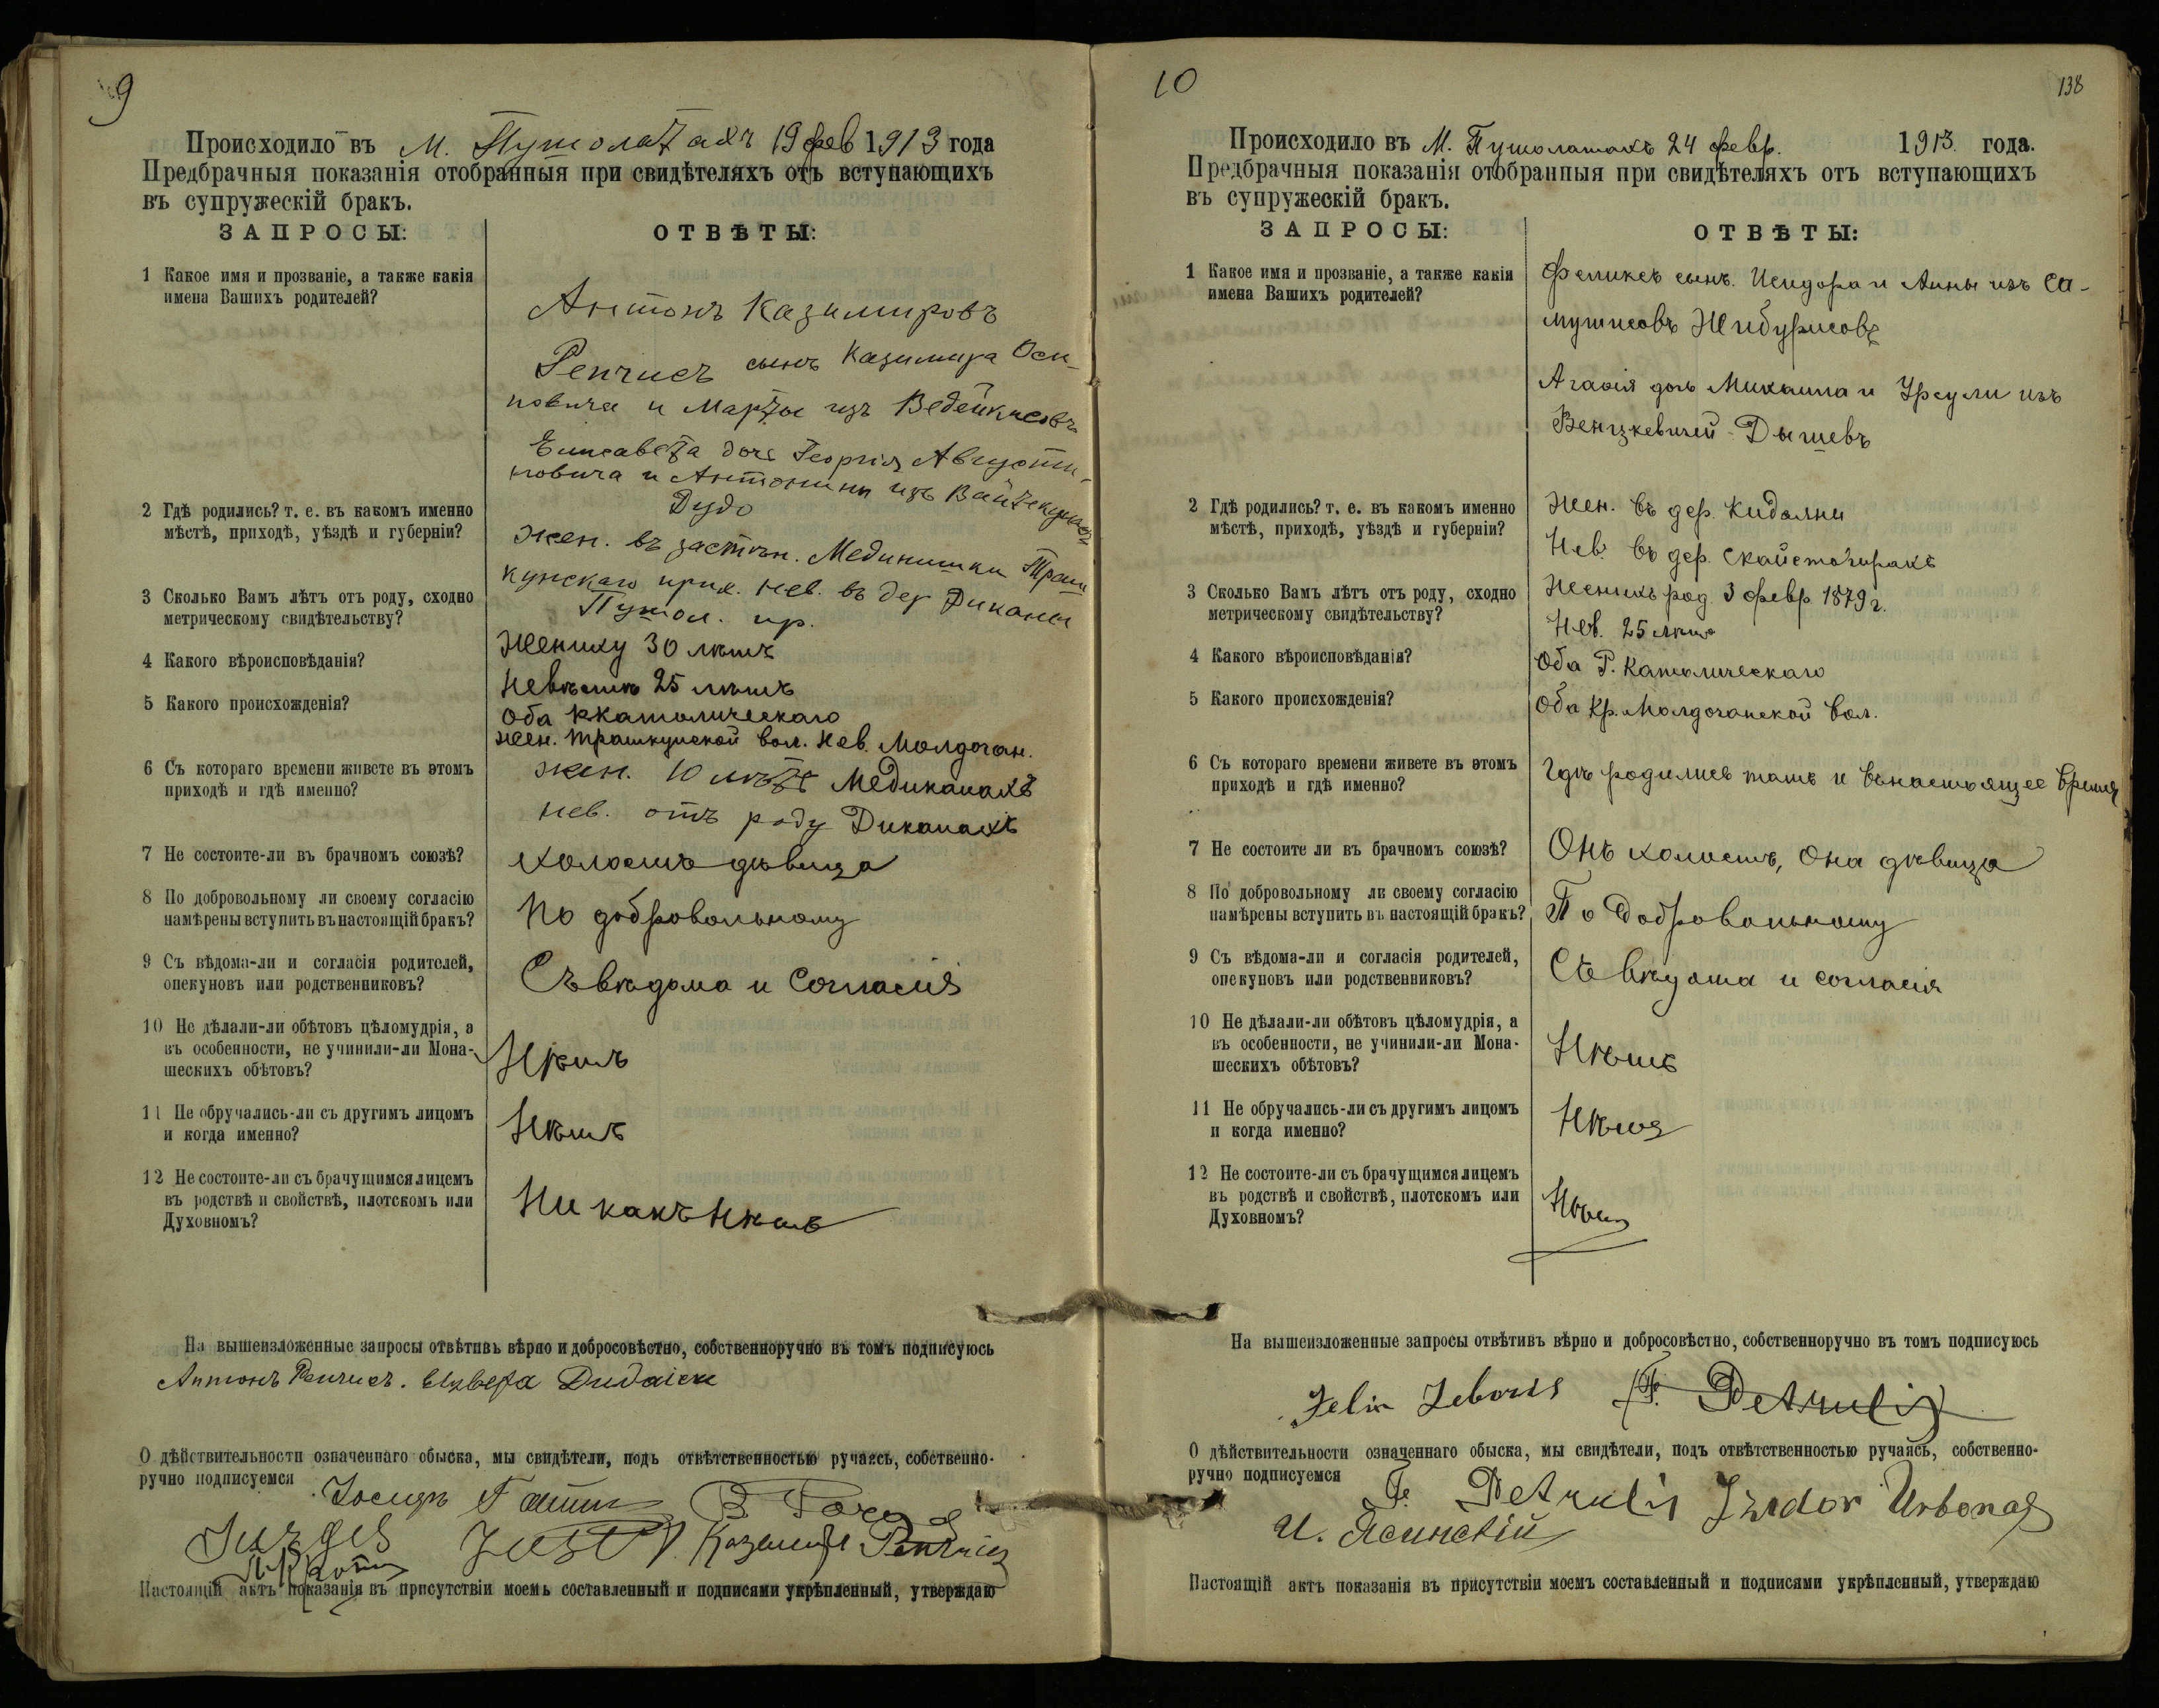 9
Происходило въ м. Пушолатахъ 19 фев 1913 года
Предбрачныя показанія отобранныя при свидѣтеляхъ отъ вступающихъ
въ супружескій бракъ.
ЗАПРОСЫ: ОТВѢТЫ:
1 Какое имя и прозваніе, а также какія
имена Вашихъ родителей?
Антонъ Казимировъ
Ренчисъ сынъ Казимира Оси-
повича и Марты изъ Ведейкисовъ
Елисавета дочь Георгія Августи-
новича и Антонины изъ
Дудо
2 Гдѣ родились? т. е. въ какомъ именно
мѣстѣ, приходѣ, уѣздѣ и губерніи?
Жен. въ застѣн. Мединишки Траш
кунскаго прих. Нев. въ дер Диканы
Пушол. пр.
3 Сколько Вамъ лѣтъ отъ роду, сходно
метрическому свидѣтельству?
Жениху 30 лѣтъ
Невѣстѣ 25 лѣтъ
4 Какого вѣроисповѣданія?
Оба Ркатолическаго
5 Какого происхожденія?
Жен. Трашкунской вол. Нев. Молдочан.
6 Съ котораго времени живете въ этомъ
приходѣ и гдѣ именно?
жен. 10 лѣтъ Медиканахъ
нев. отъ роду Диканахъ
7 Не состоите-ли въ брачномъ союзѣ?
Холостъ дѣвица
8 По добровольному ли своему согласію
намѣрены вступить въ настоящій бракъ?
По добровольному
9 Съ вѣдома-ли и согласія родителей,
опекуновъ или родственниковъ?
Съ вѣдома и согласія
10 Не дѣлали-ли обѣтовъ цѣломудрія, а
въ особенности, не учинили-ли Мона-
шескихъ обѣтовъ?
Нѣтъ
11 Не обручались-ли съ другимъ лицомъ
и когда именно?
Нѣтъ
12 Не состоите-ли съ брачущимся лицемъ
въ родствѣ и свойствѣ, плотскомъ или
Духовномъ?
Ни какъ нѣтъ
На вышеизложенные запросы отвѣтивъ вѣрно и добросовѣстно, собственноручно въ томъ подписуюсь
Антонъ Ренчисъ.
О дѣйствительности означеннаго обыска, мы свидѣтели, подъ отвѣтственностью ручаясь, собственно-
ручно подписуемся
Казимир Ренчис
Настоящій актъ показанія въ присутствіи моемъ составленный и подписями укрѣпленный, утверждаю
10 138
Происходило въ м. Пушолатахъ 24 февр. 1913 года.
Предбрачныя показанія отобранныя при свидѣтеляхъ отъ вступающихъ
въ супружескій бракъ.
ЗАПРОСЫ: ОТВѢТЫ:
1 Какое имя и прозваніе, а также какія
имена Вашихъ родителей?
Феликсъ сынъ Исидора и Анны изъ Са-
мушисовъ Жибурисовъ
Агафія дочь Михаила и Урсули изъ
Венцкевичей
2 Гдѣ родились? т. е. въ какомъ именно
мѣстѣ, приходѣ, уѣздѣ и губерніи?
Жен. въ дер. Кидолни
Нев. въ дер.
3 Сколько Вамъ лѣтъ отъ роду, сходно
метрическому свидѣтельству?
Женихъ род. 3 февр. 1879 г.
Нев. 25 лѣтъ
4 Какого вѣроисповѣданія?
Оба Р. Католическаго
5 Какого происхожденія?
Оба Кр. Молдочанской вол.
6 Съ котораго времени живете въ этомъ
приходѣ и гдѣ именно?
Гдѣ родились тамъ и въ настоящее время
7 Не состоите ли въ брачномъ союзѣ?
Онъ холостъ, Она дѣвица
8 По добровольному ли своему согласію
намѣрены вступить въ настоящій бракъ?
По добровольному
9 Съ вѣдома-ли и согласія родителей,
опекуновъ или родственниковъ?
Съ вѣдома и согласія
10 Не дѣлали-ли обѣтовъ цѣломудрія, а
въ особенности, не учинили-ли Мона-
шескихъ обѣтовъ?
Нѣтъ
11 Не обручались-ли съ другимъ лицомъ
и когда именно?
Нѣтъ
12 Не состоите-ли съ брачущимся лицемъ
въ родствѣ и свойствѣ, плотскомъ или
Духовномъ?
Нѣтъ
На вышеизложенные запросы отвѣтивъ вѣрно и добросовѣстно, собственноручно въ томъ подписуюсь
Petrulis
О дѣйствительности означеннаго обыска, мы свидѣтели, подъ отвѣтственностью ручаясь, собственно-
ручно подписуемся
Petrulis Izidor Urbonas
И. Ясинскій
Настоящій актъ показанія въ присутствіи моемъ составленный и подписями укрѣпленный, утверждаю